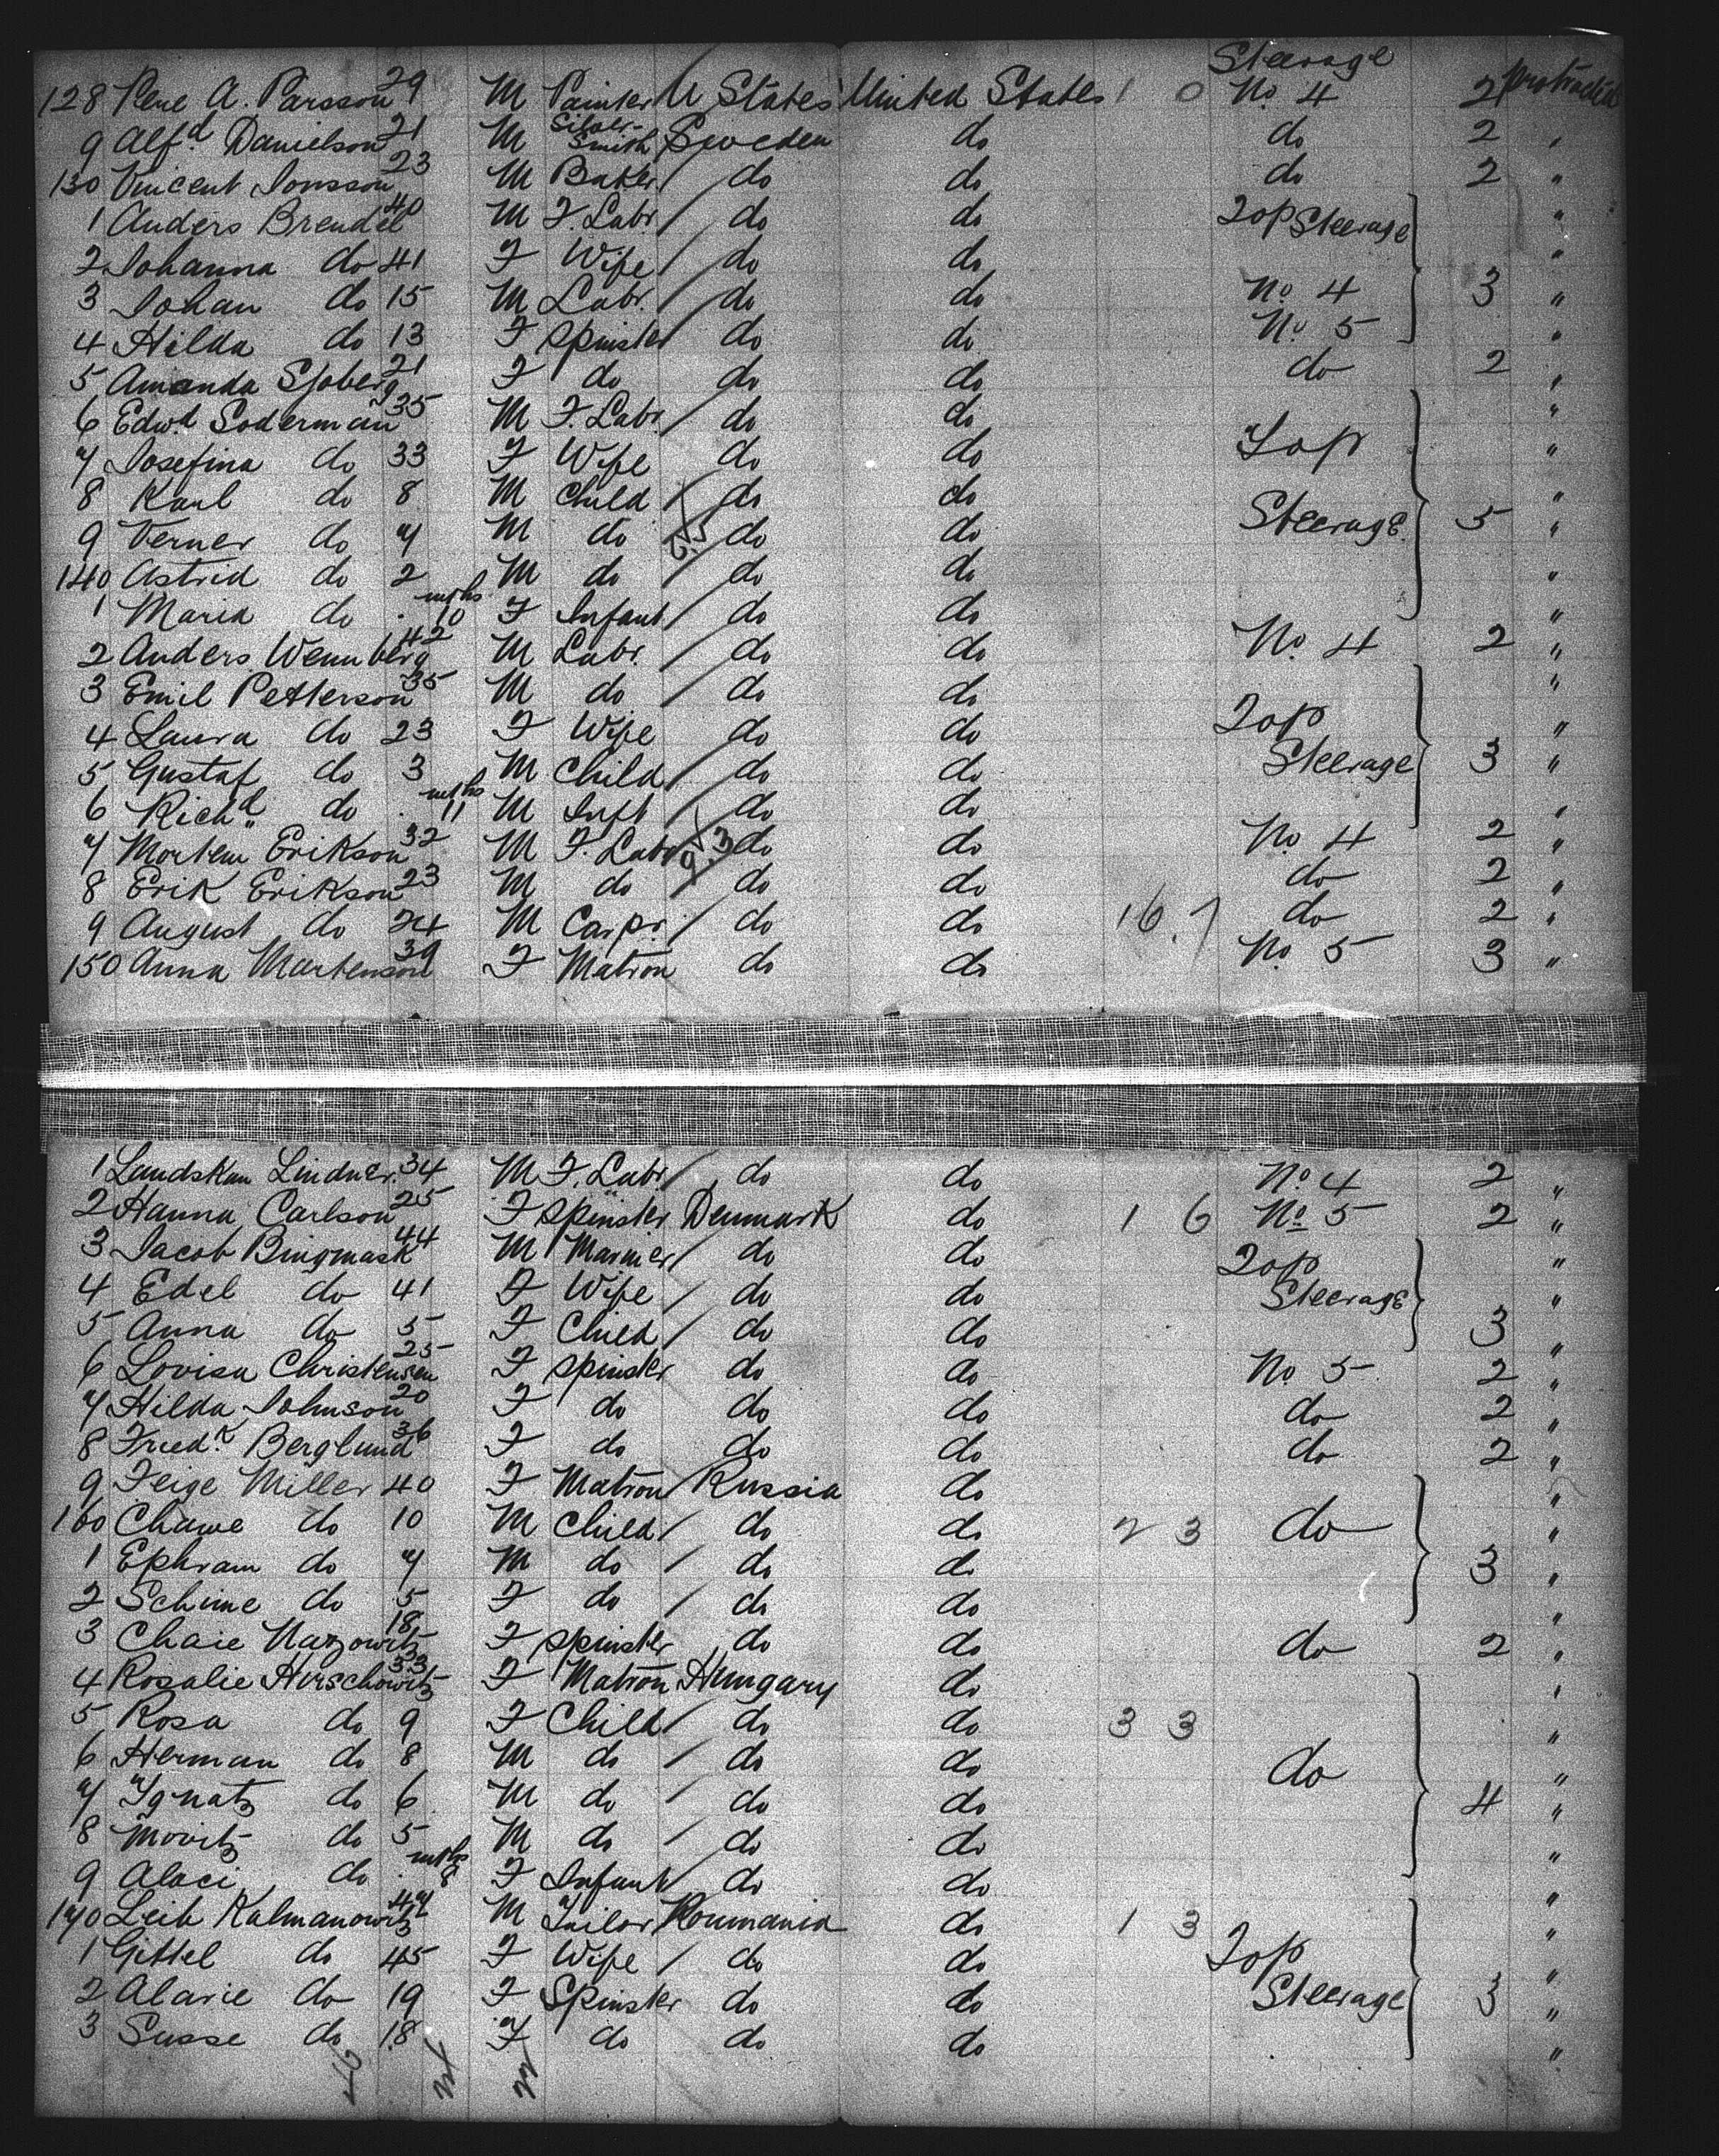 Steerage
128 Pene A. Parsson 29 M Painter U States United States 1 0 No. 4 2 protracted
9 Alfd Danielson 21 M Silver-Smith Sweden do do 2 "
130 Vincent Jonsson 23 M Baker / do do do 2 "
1 Anders Brendel 40 M F. Labr / do do Top Steerage "
2 Johanna do 41 F Wife / do do "
3 Johan do 15 M Labr. / do do No. 4 3 "
4 Hilda do 13 F Spinster do do No. 5 "
5 Amanda Sjoberg 21 F do do do do 2 "
6 Edwd Soderman 35 M F. Labr. / do do "
7 Josefina do 33 F Wife do do Top "
8 Karl do 8 M Child / do do "
9 Verner do 7 M do do do Steerage 5 "
140 Astrid do 2 M do / do do "
1 Maria do mths 10 F Infant / do do "
2 Anders Wennberg 42 M Labr. / do do No. 4 2 "
3 Emil Petterson 35 M do / do do "
4 Laura do 23 F Wife do do Top "
5 Gustaf do 3 M Child / do do Steerage 3 "
6 Richd do mths 11 M Inft / do do "
7 Morten Erikson 32 M F. Labr do do No. 4 2 "
8 Erik Erikson 23 M do do do do 2 "
9 August do 24 M Carpr. / do do 16. 7 do 2 "
150 Anna Martenson 39 F Matron do do No. 5 3 "
1 Landskan Lindner 34 M F. Labr / do do No. 4 2 "
2 Hanna Carlson 25 F Spinster Denmark do 1 6 No. 5 2 "
3 Jacob Bingmask 44 M Marnier / do do Top "
4 Edel do 41 F Wife / do do Steerage "
5 Anna do 5 F Child / do do 3 "
6 Lovisa Christensen 25 F Spinster do do No. 5 2 "
7 Hilda Johnson 20 F do do do do 2 "
8 Fried.k Berglund 36 F do do do do 2 "
9 Feige Miller 40 F Matron Russia do "
160 Chawe do 10 M Child / do do 2 3 do "
1 Ephram do 7 M do / do do 3 "
2 Schime do 5 F do / do do "
3 Chaie Nazowitz 18 F Spinster do do do 2 "
4 Rosalie Hirschowitz 33 F Matron Hungary do "
5 Rosa do 9 F Child / do do 3 3 "
6 Herman do 8 M do / do do do "
7 Ignatz do 6 M do / do do 4 "
8 Moritz do 5 M do / do do "
9 Alaci do mths 8 F Infant / do do "
170 Leib Kalmanowitz 47 M Tailor Roumania do 1 3 "
1 Gittel do 45 F Wife / do do Top "
2 Alavie do 19 F Spinster do do Steerage 3 "
3 Susse do 18 F do do do "